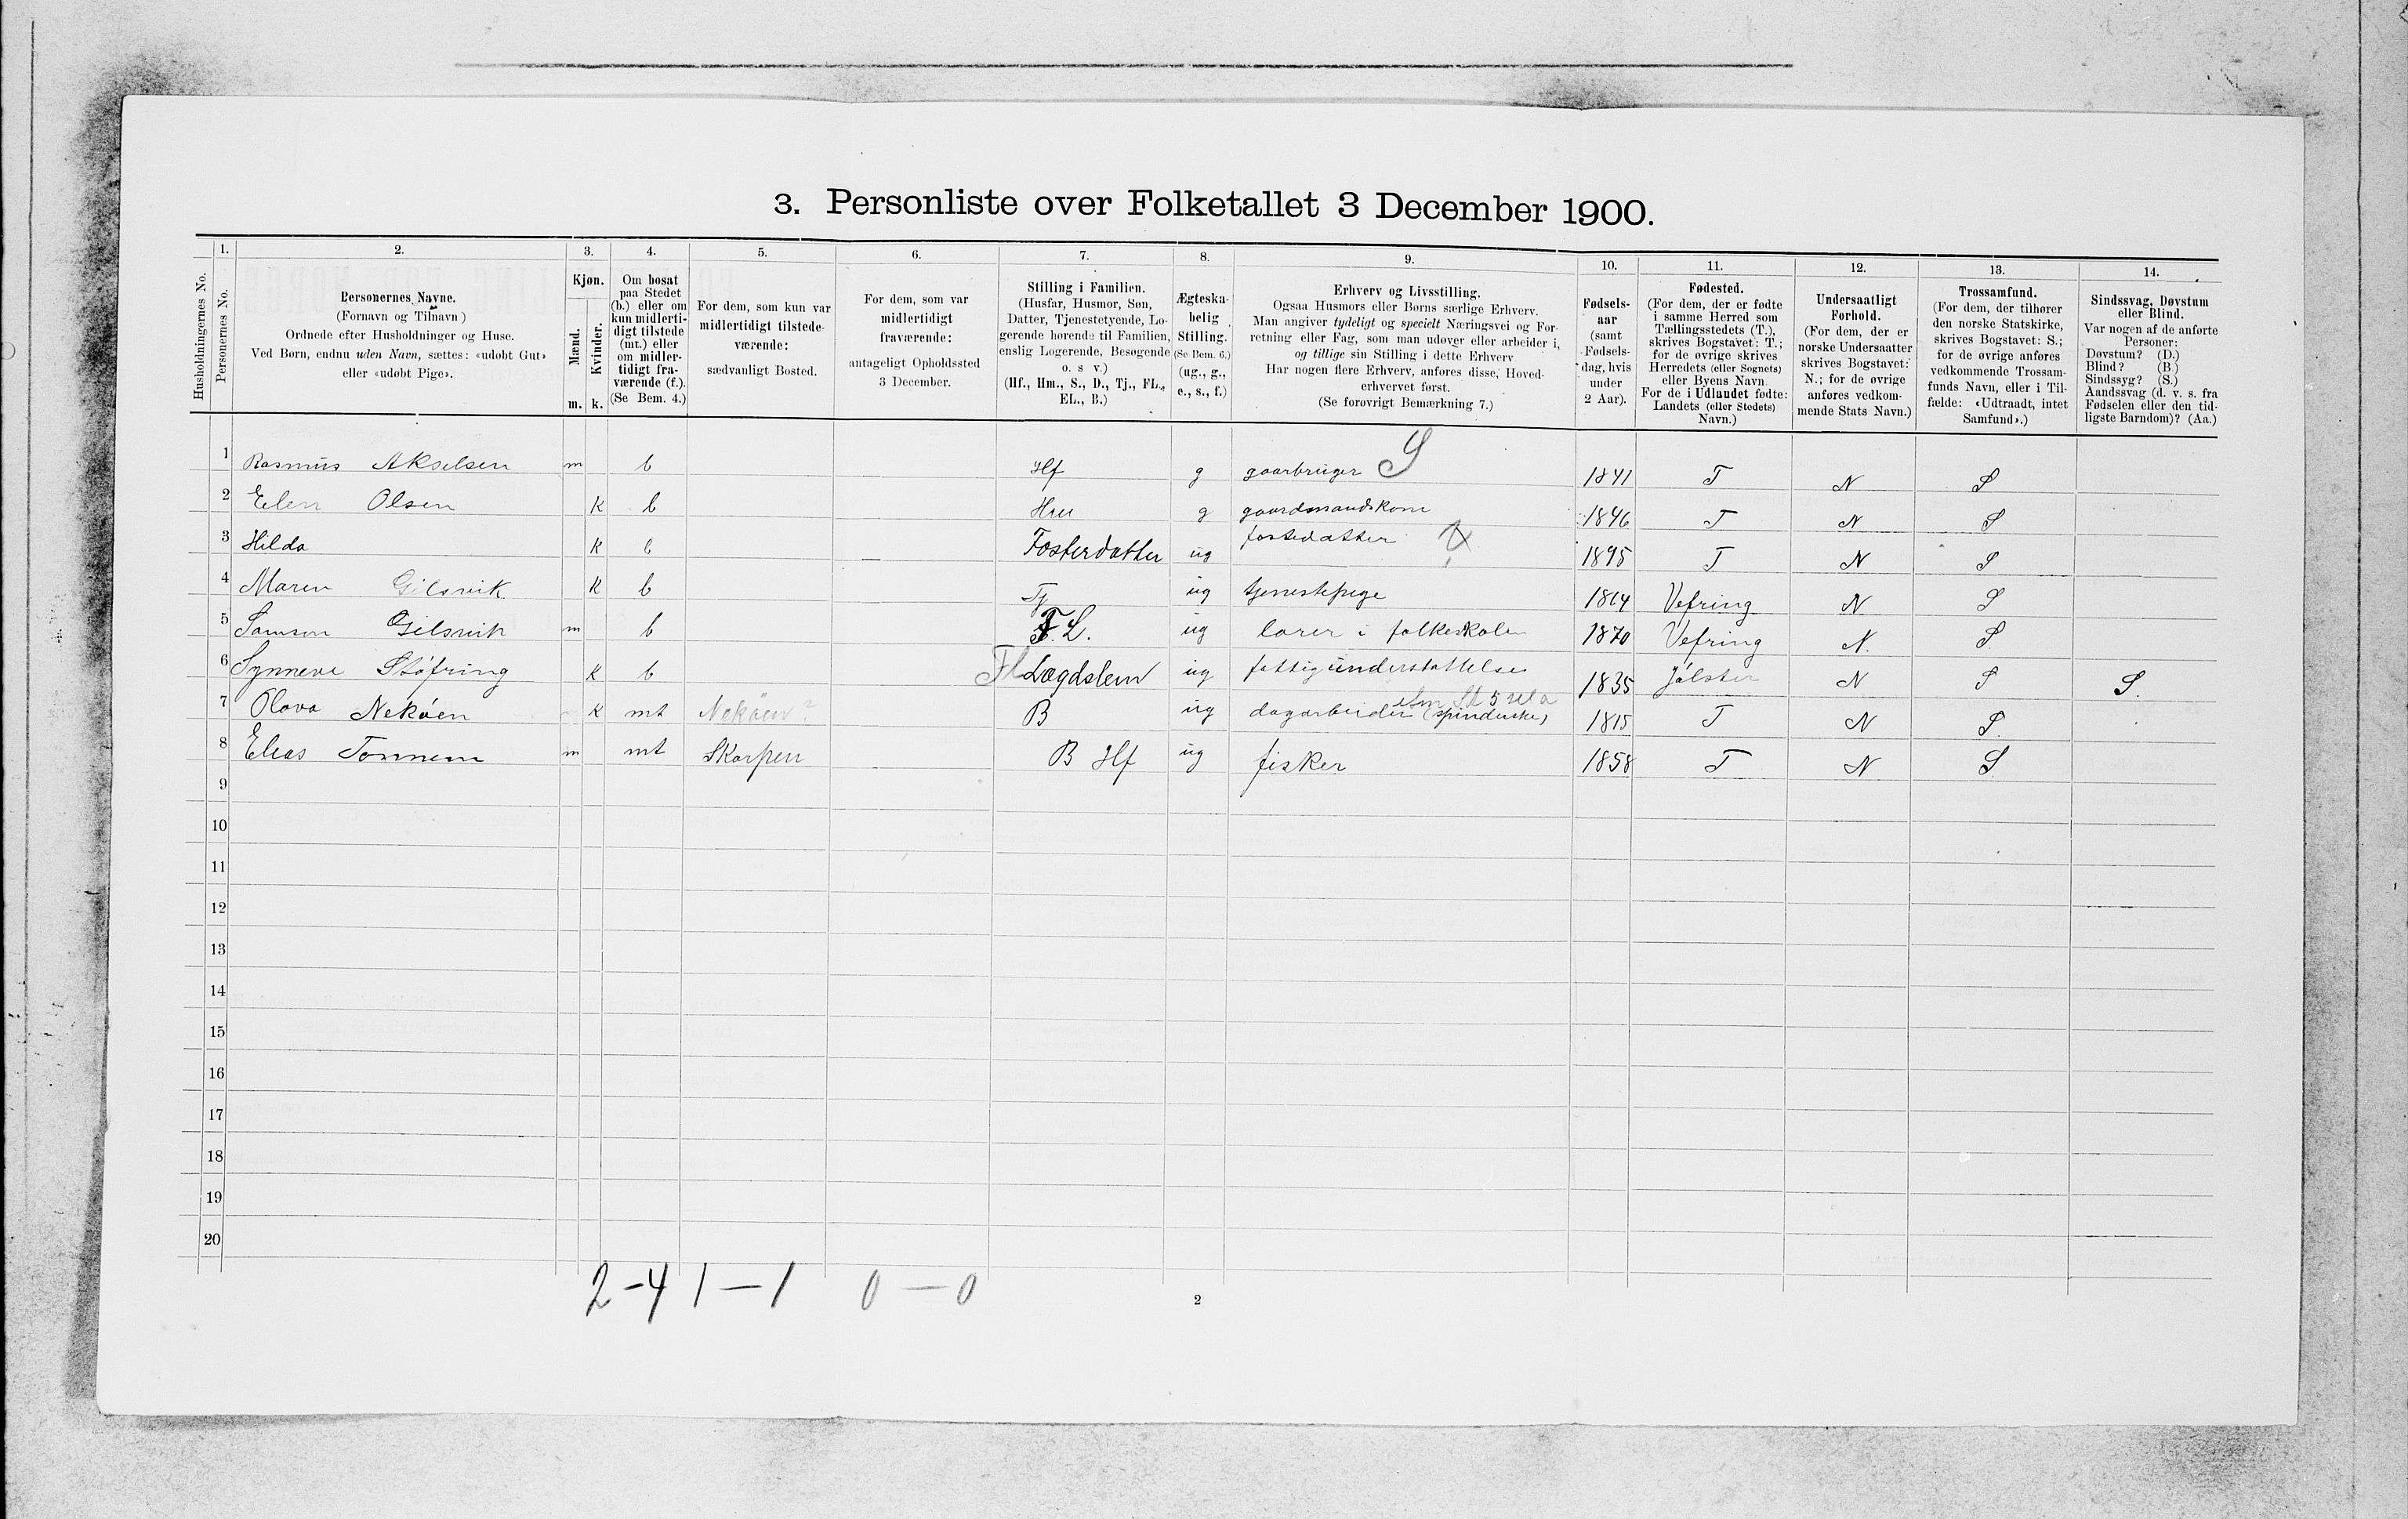 3. Personliste over Folketallet 3 December 1900.
1. 2. 3. 4. 5. 6. 7. 8. 9. 10. 11. 12. 13. 14.
Husholdningernes No.
Personernes No.
Personernes Navne.
(Fornavn og Tilnavn )
Ordnede efter Husholdninger og Huse.
Ved Børn, endnu uden Navn, sættes: «udøbt Gut»
eller «udøbt Pige».
Kjøn.
Mænd.
Kvinder.
m. k.
Om bosat
paa Stedet
(b.) eller om
kun midlerti-
digt tilstede
(mt.) eller
om midler-
tidigt fra-
værende (f.).
(Se Bem. 4.)
For dem, som kun var
midlertidigt tilstede-
værende:
sædvanligt Bosted.
For dem, som var
midlertidigt
fraværende:
antageligt Opholdssted
3 December.
Stilling i Familien.
(Husfar, Husmor, Søn,
Datter, Tjenestetyende, Lo-
gerende hørende til Familien,
enslig Logerende, Besøgende
o. s v.)
(Hf., Hm., S., D., Tj., FL.,
EL., B.)
Ægteska-
belig
Stilling.
(Se Bem. 6.)
(ug., g.,
e., s., f.)
Erhverv og Livsstilling.
Ogsaa Husmors eller Børns særlige Erhverv.
Man angiver tydeligt og specielt Næringsvei og For-
retning eller Fag, som man udøver eller arbeider i,
og tillige sin Stilling i dette Erhverv
Har nogen flere Erhverv, anføres disse, Hoved-
erhvervet først.
(Se forøvrigt Bemærkning 7.)
Fødsels-
aar
(samt
Fødsels-
dag, hvis
under
2 Aar).
Fødested.
(For dem, der er fødte
i samme Herred som
Tællingsstedets (T.),
skrives Bogstavet: T.;
for de øvrige skrives
Herredets (eller Sognets)
eller Byens Navn
For de i Udlandet fødte:
Landets (eller Stedets)
Navn.)
Undersaatligt
Forhold.
(For dem, der er
norske Undersaatter
skrives Bogstavet:
N.; for de øvrige
anføres vedkom-
mende Stats Navn.)
Trossamfund.
(For dem, der tilhører
den norske Statskirke,
skrives Bogstavet: S.;
for de øvrige anføres
vedkommende Trossam-
funds Navn, eller i Til-
fælde: «Udtraadt, intet
Samfund».)
Sindssvag, Døvstum
eller Blind.
Var nogen af de anførte
Personer:
Døvstum? (D.)
Blind? (B.)
Sindssyg? (S.)
Aandssvag (d. v. s. fra
Fødselen eller den tid-
ligste Barndom)? (Aa.)
1 Rasmus Akselsen m b Hf g gaarbruger S 1841 T N S
2 Elen Olsen k b Hm g gaardmandskone 1846 T N S
3 Hilda k b Fosterdatter ug fostedatter 1895 T N S
4 Maren Gilsvik k b Tj ug tjenestepige 1864 Vefring N S
5 Samson Gilsvik m b F.L. ug lærer i folkeskolen 1870 Vefring N. S
6 Synneve Støfring k b Fl Lægdslem ug fattigunderstøttelse 1835 Jølster N S S.
7 Olava Nekøen k mt Nekøen? B ug dagarbeider (spinderske) 1815 T N S.
8 Elias Tonnem m mt Skorpen B Hf ug fisker 1858 T N S
9
10
11
12
13
14
15
16
17
18
19
20
2-4 1-1 0-0
2